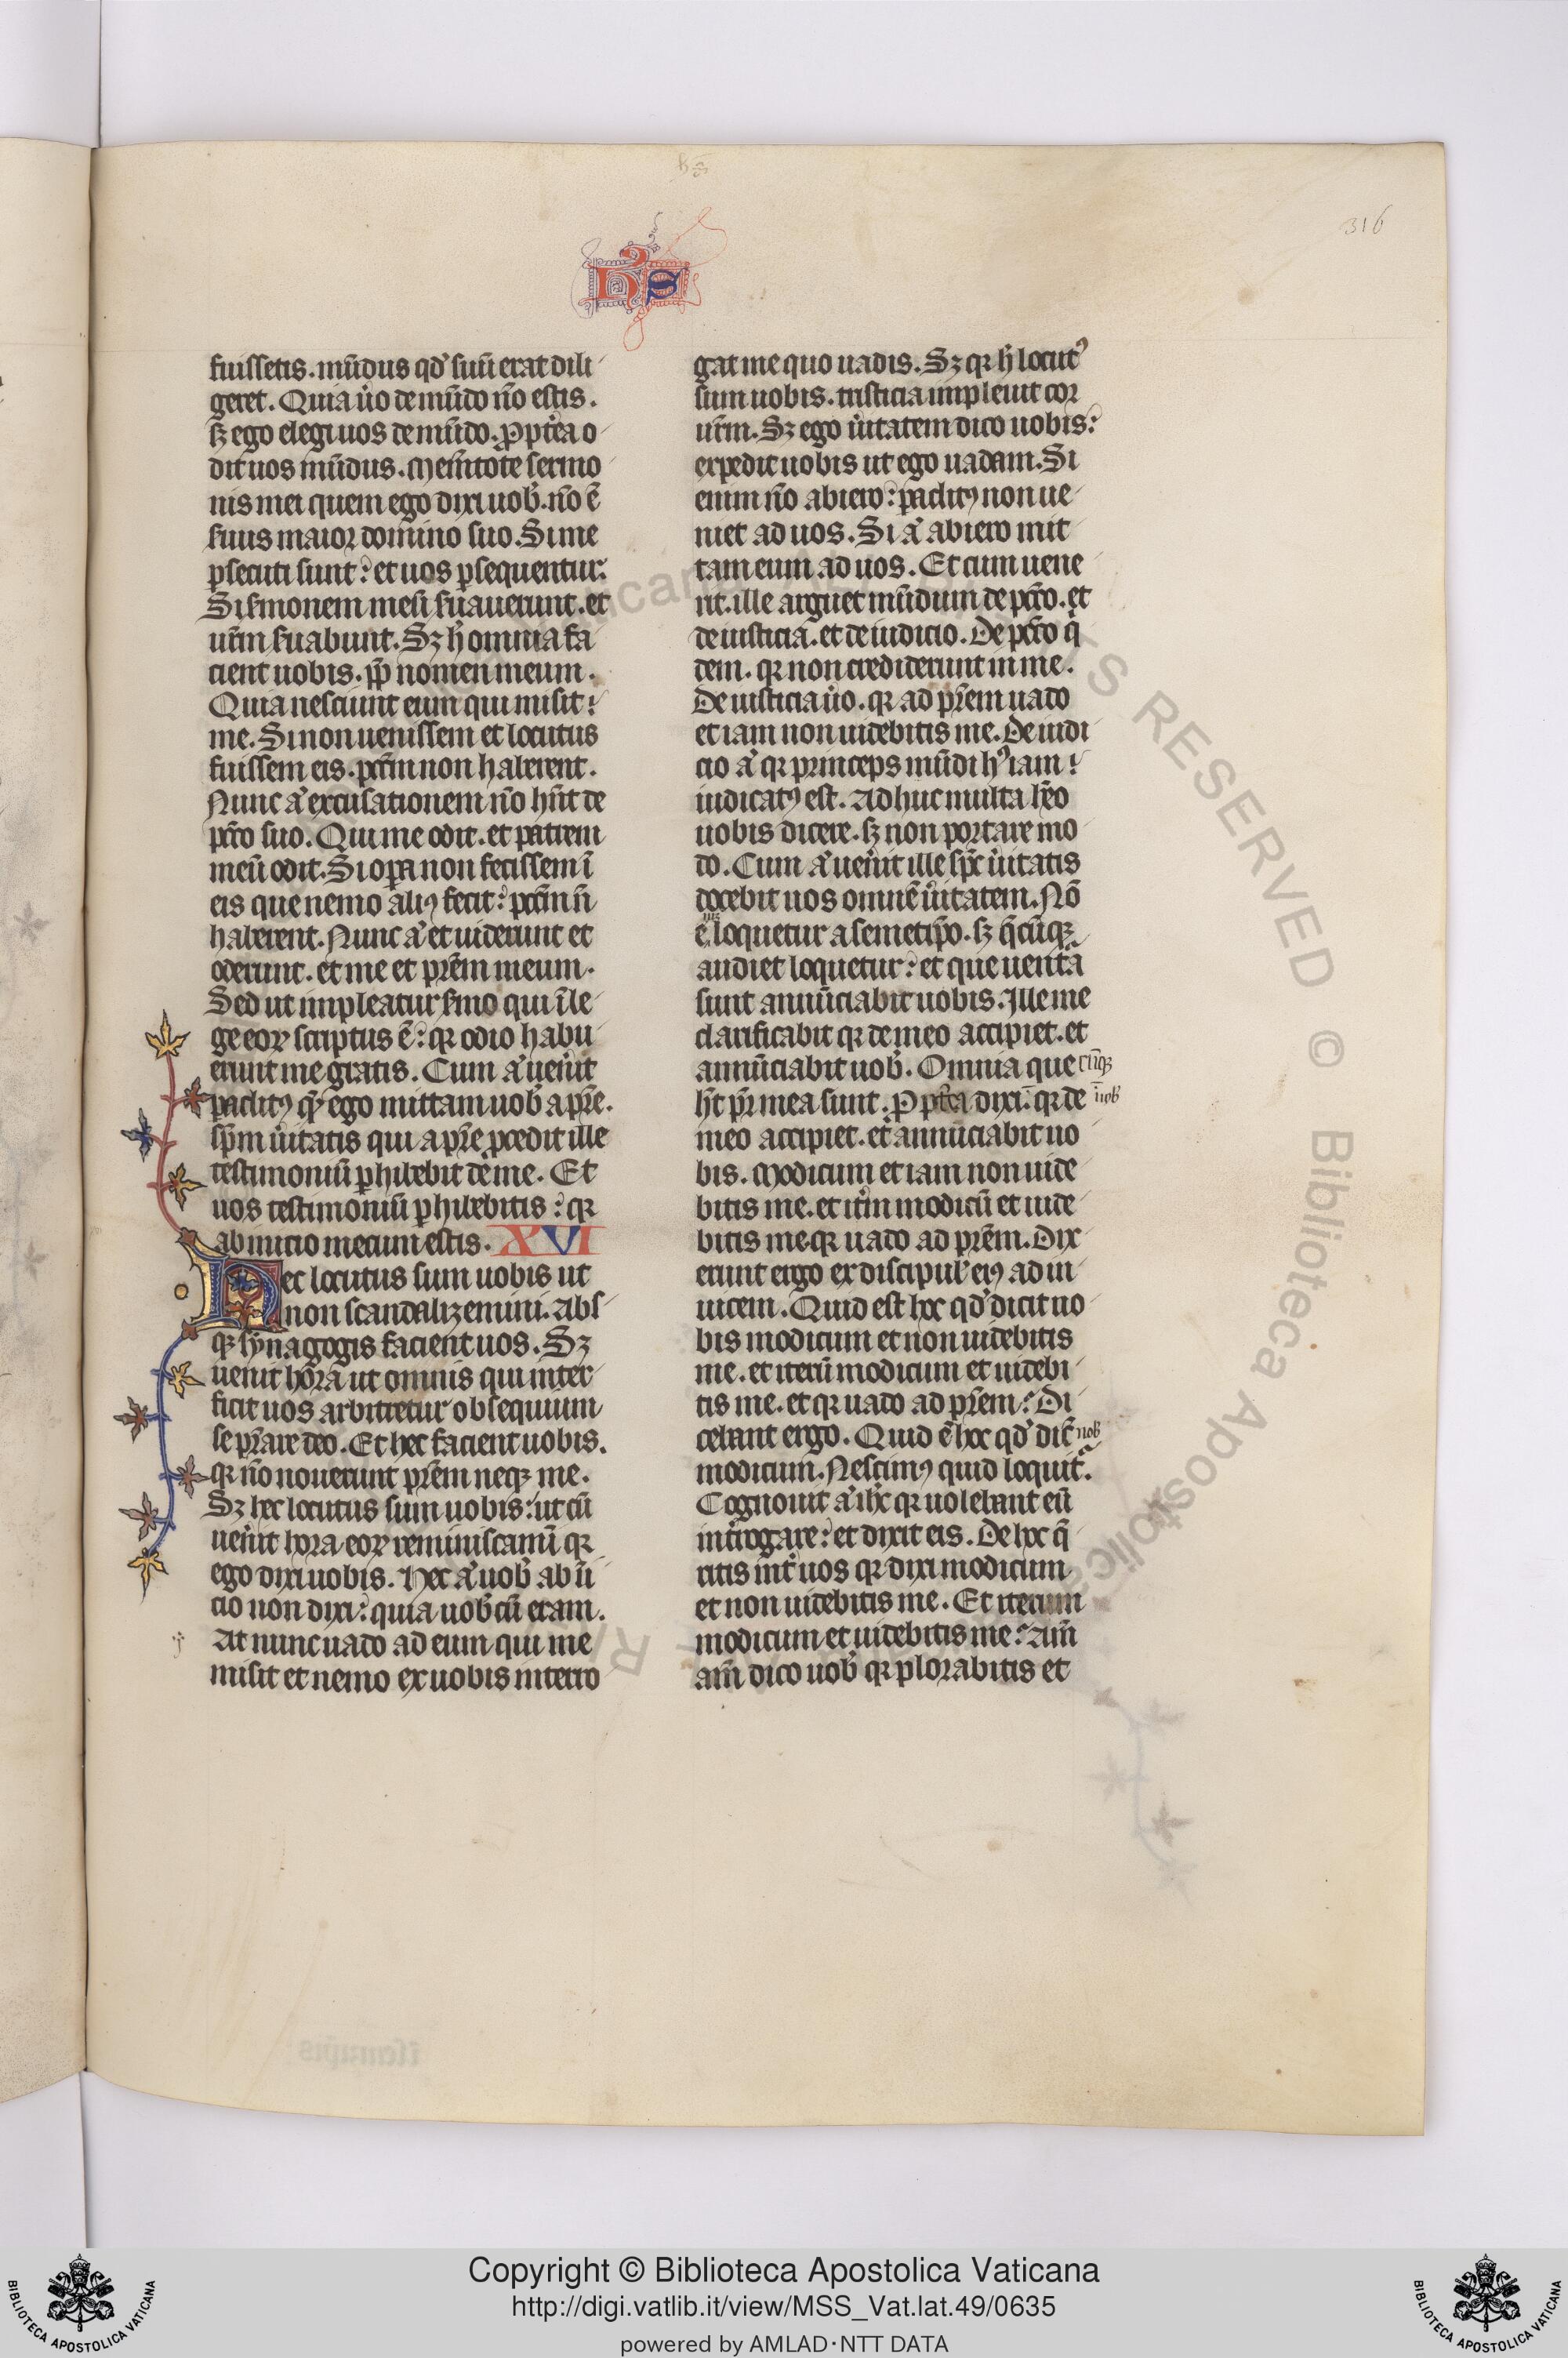 hõ
316
HS
fuissetis. mũdus qđ suũ erat dili
geret. Quia ủo de mũdo nõ estis.
sꝫ ego elegi uos de mũdo. Ꝓpťea o
dit uos mũdus. Mem̃tote sermo
nis mei quem ego dixi uob̾. nõ ẽ
s̾uus maior domino suo. Si me
ꝑsecuti sunt: et uos ꝑsequentur.
Si s̾monem meũ s̾uauerunt. et
ur̃m s̾uabunt. Sꝫ h̾ omnia fa
cient uobis. ꝓp̃ nomen meum.
Quia nesciunt eum qui misit
me. Si non uenissem et locutus
fuissem eis. pctm̃ non haberent.
Nunc aͣ excusationem nõ hñt de
pctõ suo. Qui me odit. et patrem
meũ odit. Si oꝑa non fecissem ĩ
eis que nemo aliꝰ fecit: pctm̃ ñ
haberent. Nunc aͣ et uiderunt et
oderunt. et me et prẽm meum.
Sed ut impleatur s̾mo qui ĩ le
ge eoꝝ scriptus ẽ: qꝛ odio habu
erunt me gratis. Cum aͣ uen̾it
ꝑaclitꝰ quẽ ego mittam uob̾ a pr̃e.
sp̃m ủitatis qui a pr̃e ꝓcedit ille
testimoniũ ꝑhibebit de me. Et
uos testimoniũ ꝑhibebitis: qꝛ
ab inicio mecum estis. XVI
Hec locutus sum uobis ut
non scandalizemini. Abs
qꝫ synagogis facient uos. Sꝫ
uenit hora ut omnis qui inter
ficit uos arbitretur obsequium
se pr̃are deo. Et hec facient uobis.
qꝛ nõ nouerunt prẽm neqꝫ me.
Sꝫ hec locutus sum uobis: ut cũ
uen̾it hora eoꝝ reminiscaminĩ qꝛ
ego dixi uobis. Hec aͣ uob̾ ab ĩi
cio non dixi: quia uob̾cũ eram.
At nunc uado ad eum qui me
misit et nemo ex uobis interro
gat me quo uadis. Sꝫ qꝛ h̾ locutꝰ
sum uobis. tristicia impleuit cor
ur̃m. Sꝫ ego ủitatem dico uobis:
expedit uobis ut ego uadam. Si
enim nõ abiero: ꝑaclitꝰ non ue
niet ad uos. Si aͣ abiero mit
tam eum ad uos. Et cum uene
rit. ille arguet mũdum de pctõ. et
de iusticia. et de iudicio. De pctõ q̃
dem. qꝛ non crediderunt in me.
De iusticia ủo. qꝛ ad prẽm uado
et iam non uidebitis me. De iudi
cio aͣ qꝛ princeps mũdi hꝰ iam
iudicatꝰ est. Adhuc multa hẽo
uobis dicere. sꝫ non portare mo
do. Cum aͣ uen̾it ille sp̃c ủitatis
docebit uos omnẽ ủitatem. Nõ
ẽ loquetur a semetiꝑo. sꝫ q̃cũqꝫ
audiet loquetur: et que uentͣa
sunt annũciabit uobis. Ille me
clarificabit qꝛ de meo accipiet. et
annũciabit uob̾. Omnia que cũqꝫ
ht̃ pr̃ mea sunt. Ꝓpťea dixi: qꝛ de ĩ uob̾
meo accipiet. et annũciabit uo
bis. Modicum et iam non uide
bitis me. et itm̾ modicũ et uide
bitis me. qꝛ uado ad prẽm. Dix
erunt ergo ex discipul̾ eiꝰ ad in
uicem. Quid est hoc qđ dicit no
bis modicum et non uidebitis
me. et iterũ modicum et uidebi
tis me. et qꝛ uado ad prẽm: Di
cebant ergo. Quid ẽ hoc qđ dic̃ nob̾
modicum. Nescimꝰ quid loquit̃.
Cognouit aͣ ihc̃ qꝛ uolebant eũ
int̾rogare: et dixit eis. De hoc q̃
ritis int̾ uos qꝛ dixi modicum
et non uidebitis me. Et iterum
modicum et uidebitis me: Am̃
am̃ dico uob̾ qꝛ plorabitis et
Copyright © Biblioteca Apostolica Vaticana
http://digi.vatlib.it/view/MSS_Vat.lat.49/0635
powered by AMLAD·NTT DATA
BIBLIOTECA APOSTOLICA VATICANA
BIBLIOTECA APOSTOLICA VATICANA